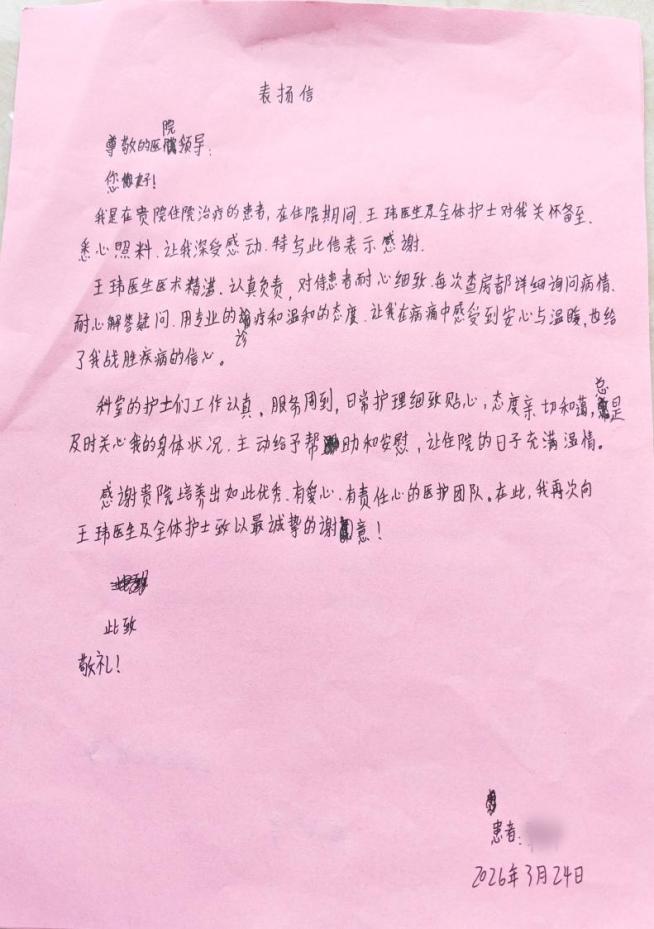 表扬信
尊敬的医院领导:
您好!
我是在贵院住院治疗的患者,在住院期间.王玮医生及全体护士对我关怀备至.
悉心照料.让我深受感动.特写此信表示感谢.
王玮医生医术精湛.认真负责,对待患者耐心细致.每次查房都详细询问病情.
耐心解答疑问.用专业的诊疗和温和的态度.让我在病痛中感受到安心与温暖,也给
了我战胜疾病的信心。
科室的护士们工作认真、服务周到,日常护理细致贴心,态度亲切和蔼,总是
及时关心我的身体状况.主动给予帮助和安慰,让住院的日子充满温情。
感谢贵院培养出如此优秀.有爱心.有责任心的医护团队。在此,我再次向
王玮医生及全体护士致以最诚挚的谢意!
此致
敬礼!
患者:
2026年3月24日